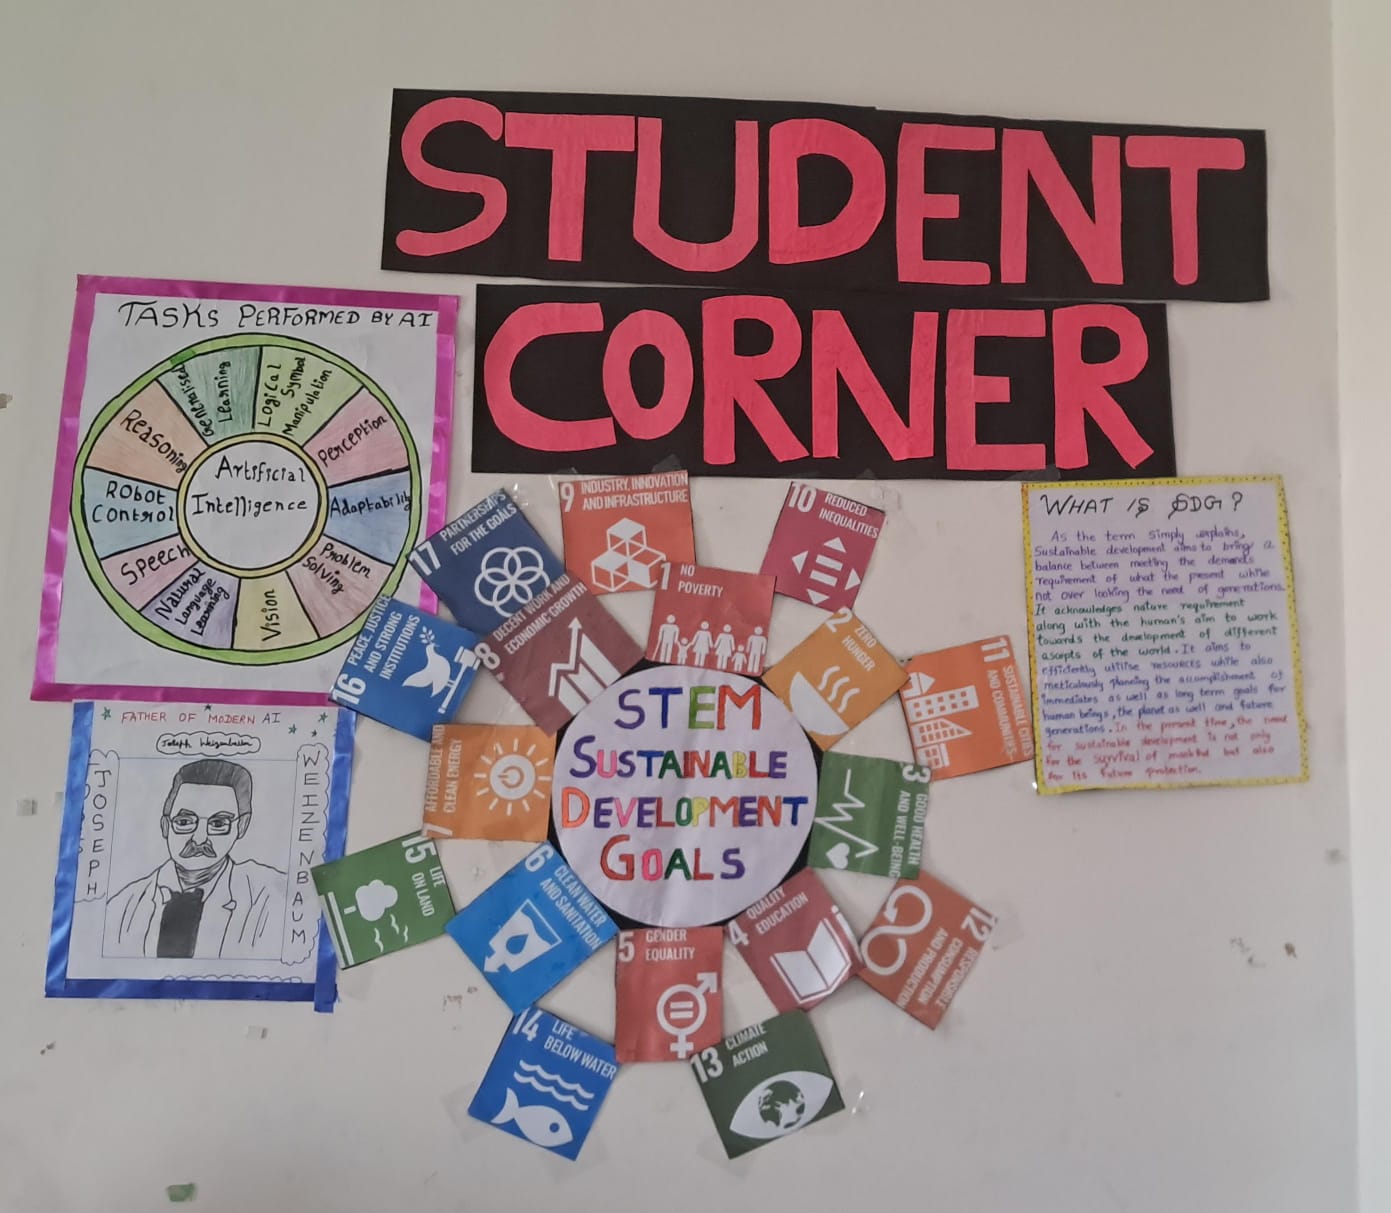 STUDENT
CORNER
TASKS PERFORMED BY AI
Artificial
Intelligence
Generalised
Learning
Logical
Symbol
Manipulation
Perception
Adaptability
Problem
Solving
Vision
Natural
Language
Learning
Speech
Robot
Control
Reasoning
FATHER OF MODERN AI
Joseph Weizenbaum
JOSEPH
WEIZENBAUM
STEM
SUSTAINABLE
DEVELOPMENT
GOALS
1 NO
POVERTY
2 ZERO
HUNGER
3 GOOD HEALTH
AND WELL-BEING
4 QUALITY
EDUCATION
5 GENDER
EQUALITY
6 CLEAN WATER
AND SANITATION
7 AFFORDABLE AND
CLEAN ENERGY
8 DECENT WORK AND
ECONOMIC GROWTH
9 INDUSTRY, INNOVATION
AND INFRASTRUCTURE
10 REDUCED
INEQUALITIES
11 SUSTAINABLE CITIES
AND COMMUNITIES
12 RESPONSIBLE
CONSUMPTION
AND PRODUCTION
13 CLIMATE
ACTION
14 LIFE
BELOW WATER
15 LIFE
ON LAND
16 PEACE, JUSTICE
AND STRONG
INSTITUTIONS
17 PARTNERSHIPS
FOR THE GOALS
WHAT IS SDG?
As the term simply explains,
Sustainable development aims to bring a
balance between meeting the demands
requirement of what the present while
not over looking the need of generations.
It acknowledges nature requirement
along with the human's aim to work
towards the development of different
ascepts of the world. It aims to
efficiently utilise resources while also
meticulously planning the accomplishment of
immediates as well as long term goals for
human beings, the planet as well and future
generations. In the present time, the need
for sustainable development is not only
for the survival of mankind but also
for its future protection.